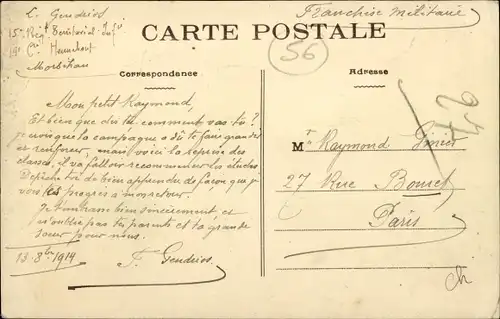 L. Gendrios
15e Régt Territorial Inft
19e Cie Hennebont
Morbihan
Franchise Militaire
CARTE POSTALE
56
Correspondance
Adresse
Mon petit Raymond,
Et bien que dis tu comment vas tu?
je crois que la campagne a dû te faire grandir
et renforcer, mais voici la reprise des
classes, il va falloir recommencer les études
Dépêche toi de bien apprendre de façon que je
vois tes progrès à mon retour.
Je t'embrasse bien sincèrement, et
n'oublie pas tes parents et ta grande
sœur pour nous.
13 8bre 1914
F. Gendrios
Mr Raymond
27 Rue Bouret
Paris
27
Ch